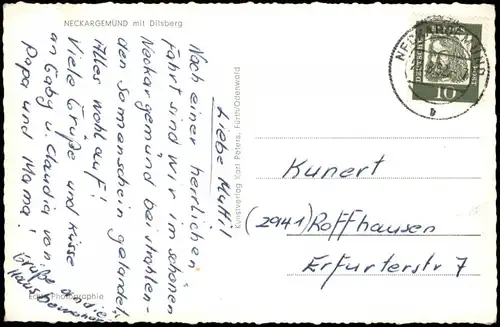 NECKARGEMÜND mit Dilsberg
Liebe Mutti!
Nach einer herrlichen
Fahrt sind wir im schönen
Neckargemünd bei strahlen-
den Sonnenschein gelandet.
Alles wohlauf!
Viele Grüße und Küsse
an Gaby u. Claudia von
Papa und Mama!
Grüße an die
Echte Photographie
Kunstverlag Karl Peters, Fürth/Odenwald
10
b
Kunert
(2941) Roffhausen
Erfurterstr 7